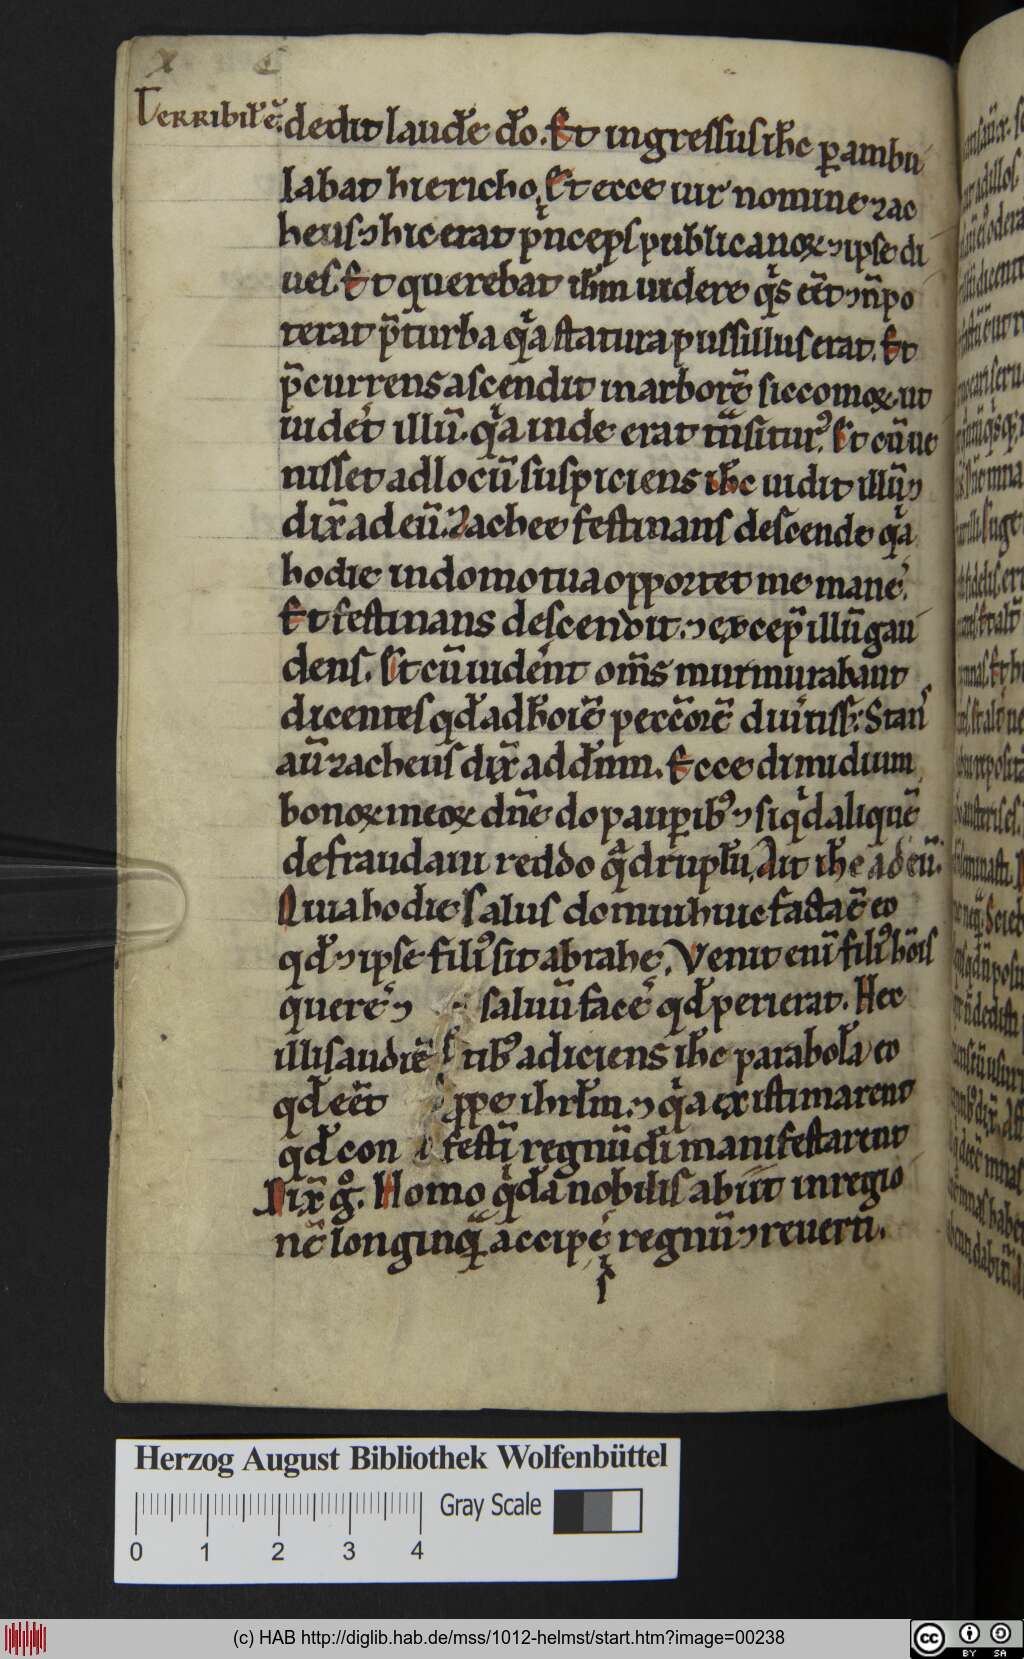 x
Terribił ē.
dedit laudē dō. Et ingressus ihc̄ p̲ambu
labat hiericho. Et ecce uir nomine zac
heus ⁊ hic erat p̄nceps publicanoꝝ ⁊ ipse di
ues. Et querebat ihm̄ uidere qͥs eēt ⁊ n̄ po
terat p̄ turba qͥa statura pussillus erat. Et
p̄currens ascendit in arborē siccomoꝝ ut
uidet illū. qͥa inde erat tn̄siturꝰ. Et cū ue
nisset ad locū suspiciens ihc̄ uidit illū ⁊
dix̄ ad eū. Zachee festinans descende qͥa
hodie in domo tua opportet me mane᷑.
Et festinans descendit. ⁊ excep̄ illū gau
dens. Et cū uident om̄s murmurabant
dicentes qd̄ ad hōīē peccōrē diu᷑tiss&. Stans
aū zacheus dix̄ ad dn̄m. Ecce dimidium
bonoꝝ meoꝝ dn̄e do paup̲ibꝰ ⁊ si qͥd aliquē
defraudaui reddo qᷓdruplū. Ait ihc̄ ad eū.
Quia hodie salus domui huic facta ē eo
qd̄ ⁊ ipse filiꝰ sit abrahe. Venit enī filiꝰ hōīs
quere᷑ ⁊ saluū face᷑ qd̄ perierat. Hec
illis audiē tibꝰ adiciens ihc̄ parabolā eo
qd̄ eēt ꝓpe ihrl̄m ⁊ qͥa existimarent
qd̄ con festī regnū dī manifestarent
Dix̄ gͦ. Homo qͥdā nobilis abiit in regio
nē longinqᷓ accipe᷑ regnū ⁊ reuerti.
Herzog August Bibliothek Wolfenbüttel
Gray Scale
0 1 2 3 4
(c) HAB http://diglib.hab.de/mss/1012-helmst/start.htm?image=00238
cc BY SA